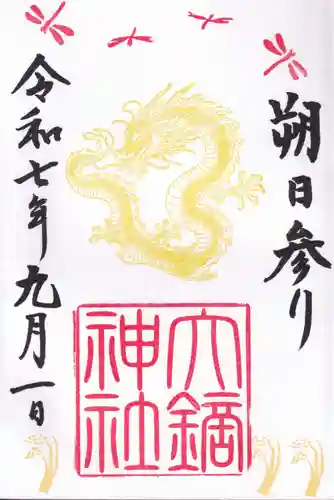 朔日参り
六鏑神社
令和七年九月一日